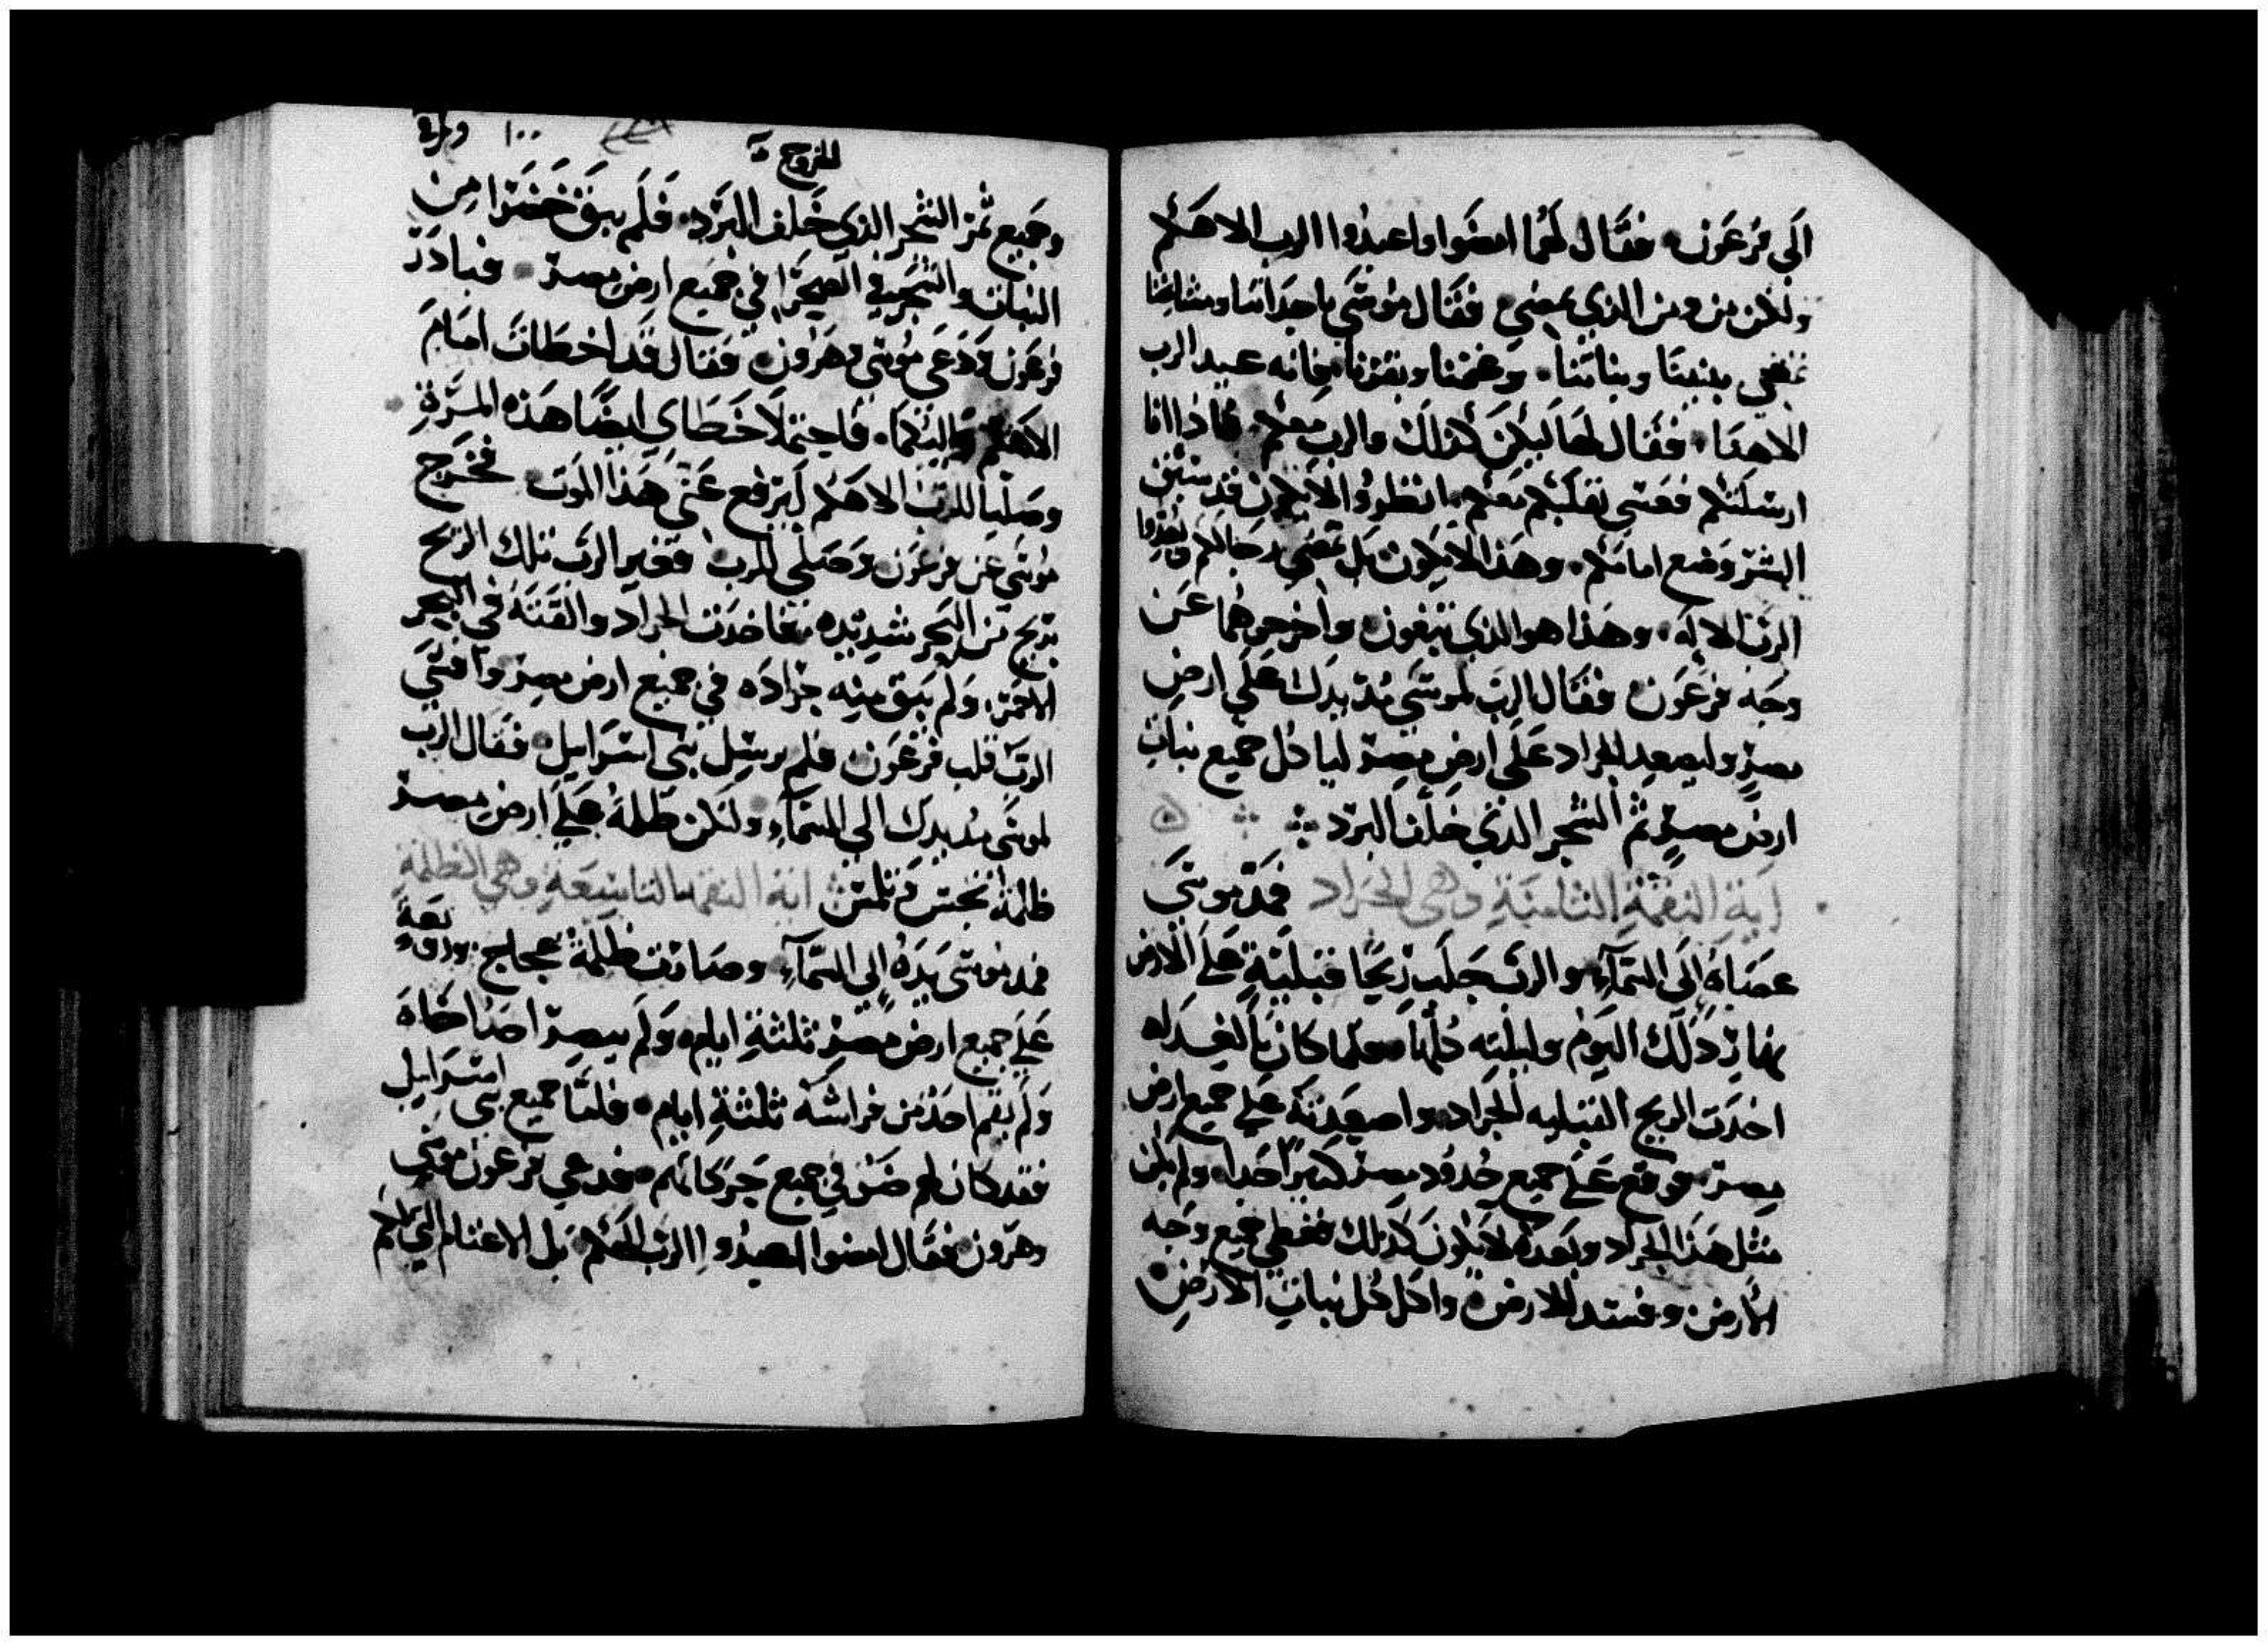 الى فرعون فقال لهما امضوا واعبدوا الرب الاهكم
ولكن من ومن الذي يمضي فقال موسى باحداثنا ومشايخنا
نمضي ببنينا وبناتنا وغنمنا وبقرنا فانه عيد الرب
الاهنا فقال لهما ليكن كذلك والرب معكم فاذا انا
ارسلتكم فعسى ثقلكم معكم انظروا الا يكون قد
الشر وضع امامكم وهذا لا يكون بل تمضي رجالكم وليعبدوا
الرب الاله وهذا هو الذي تبغون واخرجوهما عن
وجه فرعون فقال الرب لموسى مد يدك على ارض
مصر وليصعد الجراد على ارض مصر لياكل جميع نبات
ارض مصر ثم الشجر الذي خلف البرد
اية النقمة الثامنة وهي الجراد فمد موسى
عصاه الى السماء والرب جلب ريحا قبلية على الارض
نهار ذلك اليوم وليلته كلها فلما كان بالغداه
اخدت الريح القبليه الجراد واصعدته على جميع ارض
مصر فوقع على جميع حدود مصر كثيرا جدا ولم يكن
مثل هذا الجراد وبعده لا يكون كذلك فغطى جميع وجه
الارض وفسد الارض واكل كل نبات الارض
الخروج
١٠٠
وجميع ثمر الشجر الذي خلف البرد فلم يبق خضرا من
النبات والشجر في الصحرا في جميع ارض مصر فبادر
فرعون ودعى موسى وهرون فقال قد اخطات امام
الاهكم واليكما فاحتملا خطاي ايضا هذه المرة
وصليا للرب الاهكم ليرفع عني هذا الموت فخرج
موسى عن فرعون وصلى للرب فغير الرب تلك الريح
بريح من البحر شديده فاخدت الجراد والقته في البحر
الاحمر ولم يبق منه جراده في جميع ارض مصر واقسى
الرب قلب فرعون فلم يرسل بني اسرايل فقال الرب
لموسى مد يدك الى السماء ولتكن ظلمة على ارض مصر
ظلمة اية النقمة التاسعة وهي الظلمة
فمد موسى يده الى السماء وصارت ظلمة عجاج وزوبعة
على جميع ارض مصر ثلثة ايام ولم يبصر احدا اخاه
ولم يقم احد من فراشه ثلثة ايام فاما جميع بني اسرايل
فقد كان لهم ضو في جميع حركاتهم فدعى فرعون موسى
وهرون فقال امضوا اعبدوا الرب الاهكم بل الاغنام التي لكم